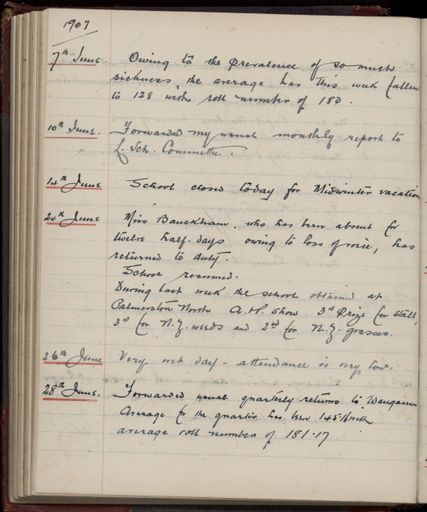 1907
7th June. Owing to the prevalence of so much
sickness the average has this week fallen
to 128 with roll number of 180.
10th June. Forwarded my usual monthly report to
Sch. Committee.
14th June School closed today for Midwinter vacation
24th June Miss Bauckham, who has been absent for
twelve half-days owing to loss of voice, has
returned to duty.
School resumed.
During last week the school obtained at
Palmerston North A.P. Show 3rd Prize for Stall,
3rd for N.Z. weeds and 2nd for N.Z. grasses.
26th June Very wet day - attendance is very low.
28th June. Forwarded usual quarterly returns to Wanganui
Average for the quarter has been 145 with
average roll number of 181.17